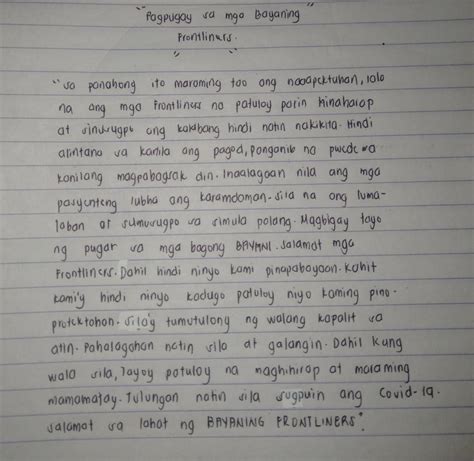 "Pagpugay sa mga Bayaning
Frontliners.
"sa panahong ito maraming tao ang naaapektuhan, lalo
na ang mga Frontliners na patuloy parin hinaharap
at sinusugpo ang kalabang hindi natin nakikita. Hindi
alintana sa kanila ang pagod, panganib na pwede sa
kanilang magpabagsak din. Inaalagaan nila ang mga
pasyenteng lubha ang karamdaman. sila na ang luma-
laban at sumusugpo sa simula palang. Magbigay tayo
ng pugay sa mga bagong BAYANI. salamat mga
Frontliners. Dahil hindi ninyo kami pinapabayaan. Kahit
kami'y hindi ninyo kadugo patuloy niyo kaming pino-
protektahan. sila'y tumutulong ng walang kapalit sa
atin. Pahalagahan natin sila at galangin. Dahil kung
wala sila, tayoy patuloy na maghihirap at maraming
mamamatay. Tulungan natin sila sugpuin ang Covid-19.
salamat sa lahat ng BAYANING FRONTLINERS".